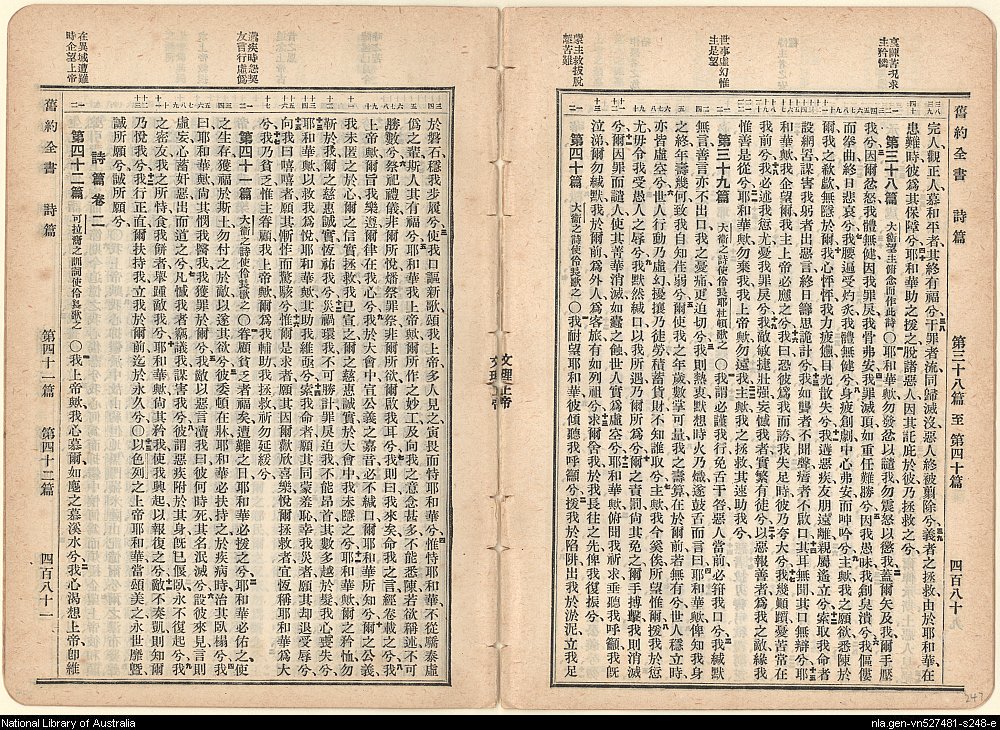 舊約全書　詩篇　第三十八篇　至　第四十篇　四百八十
哀陳苦況求
主矜憐
世事虛幻惟
主是望
蒙主救拔脫
離苦難
完人觀正人、慕和平者其終有福兮、干罪者流同歸滅沒惡人終被翦除兮、義者之拯救由於耶和華、在
患難時彼爲其保障兮、耶和華助之援之、脫諸惡人、因其託庇於彼乃拯救之兮、
第三十八篇　大衞望主俯念而作此詩〇耶和華歟勿發忿以譴我、勿震怒以懲我蓋爾矢及我爾手壓
我兮、因爾忿怒我體無健因我罪戾我骨弗安、我罪滅頂、如重任難勝兮、因我愚昧我創臭潰兮、我傴僂
而拳曲、終日悲哀兮、我腰遍受灼炙我體無健兮、身疲創劇中心弗安而呻吟兮、主歟我之願欲悉陳於
爾、我之欷歔無隱於爾、我心怦怦我力疲憊、目光散失兮、我遘惡疾、友朋遠離親屬遙立兮、索取我命者
設網罟謀害我躬者出惡言、終日籌思詭計兮、我如聾者不聞聲瘖者不啟口其耳無聞其口無辯兮、耶
和華歟我企望爾、我主上帝必應之兮、我曰恐彼爲我而誇、我失足時彼乃夸大兮、我幾顛躓憂苦常在
我前兮、我必述我愆尤、憂我罪戾兮、我敵敏捷壯强、妄憾我者實繁有徒兮、以惡報善者爲我之敵、緣我
惟善是從兮、耶和華歟勿棄我、我上帝歟勿遠我、主歟我之拯救、其速助我兮、
第三十九篇　大衞之詩使伶長耶杜頓歌之〇我謂必謹我行免舌干咎、惡人當前必箝我口兮、我緘默
無言、善言亦不出口、我之憂痛更迫切兮、我中熱衷默想時火乃熾、遂鼓舌而言曰、耶和華歟俾我知我身
之終、年壽幾何、致我自知荏弱兮、爾使我之年歲、數掌可量、我之壽算在於爾前若無有兮、世人穩立時、
亦皆虛空兮、世人行動、乃虛幻擾攘乃徒勞、積蓄貨財不知誰取兮、主歟我今奚俟、所望惟爾、援我於愆
尤毋令我受愚人之辱兮、我默然緘口、以我所遇乃爾所爲兮、爾之責罰尚其免之、爾手搏擊我則消滅
兮、爾因罪而譴人使其菁華消滅如蠧之蝕、世人實爲虛空兮、耶和華歟俯聞我祈求、垂聽我呼籲、我旣
泣涕爾勿緘默我於爾前、爲外人、爲客旅、有如列祖兮、求爾容我於我長往之先、俾我復振兮、
第四十篇　大衞之詩使伶長歌之〇我耐望耶和華、彼傾聽我呼籲兮、援我於陷阱、出我於淤泥、立我足
文理上帝
於磐石、穩我步履兮、使我口謳新歌、頌我上帝、多人見之、寅畏而恃耶和華兮、惟恃耶和華、不從驕泰虛
僞之輩、斯人其有福兮、耶和華我上帝歟爾所作之妙工、及向我之意念甚多、不能悉陳若欲稱述、不可
勝數兮、祭祀禮儀非爾所悅、燔祭罪祭非爾所欲、爾啟我耳兮、我則曰、我來矣、命我之言、經卷載之兮、我
上帝歟爾旨我樂遵、爾律在我心兮、我於大會中、宣公義之嘉音、必不緘口、爾耶和華所知兮、爾之公義
我未匿之於心、爾之信實拯救、我已宣之、爾之慈惠誠實、於大會中我未隱之兮、耶和華歟爾之矜恤勿
靳於我、爾之慈惠誠實恆祐我兮、災禍環我不可勝計、罪戾迫我不能昂首、其數多越於髮、我心喪失兮、
耶和華歟以救我爲悅、耶和華歟其助我維亟兮、索我命者、願其同蒙羞恥、幸我災者、願其却退受辱兮、
向我曰嘻嘻者、願其慚怍而驚駭兮、惟爾是求者、願其因爾歡欣喜樂、悅爾拯救者、宜恆稱耶和華爲大
兮、我乃貧乏、惟主眷顧、我上帝歟爾爲我輔助、我拯救、祈勿延緩兮、
第四十一篇　大衞之詩使伶長歌之〇眷顧貧乏者福矣、遭難之日、耶和華必援之兮、耶和華必佑之、使
之生存、獲福於斯土、勿付之於敵、以遂其欲兮、彼委頓在牀、耶和華必扶持之、於疾病時、治其臥榻兮、我
曰、耶和華歟向其憫我、醫我、我獲罪於爾兮、我敵以惡言瀆我曰、彼何時死、其名泯滅兮、設彼來見、言則
虛妄、心蓄奸惡、出而道之兮、凡憾我者竊議、我謀害我兮、彼謂惡疾附於其身、旣已偃臥永不復起兮、我
之密友、我之所恃、食我餅者、舉踵敵我兮、耶和華歟尚其矜我、使我興起、以報復之兮、敵不奏凱、則知爾
乃悅我兮、我行正直、爾扶持我、立我於爾前、迄於永久兮、〇以色列之上帝耶和華、當頌美之、永世靡曁、
誠所願兮、誠所願兮、
詩篇　卷二
第四十二篇　可拉裔之訓詞使伶長歌之〇我上帝歟、我心慕爾、如鹿之慕溪水兮、我心渴想上帝、卽維
舊約全書　詩篇　第四十一篇　第四十二篇　四百八十一
遘疾時怨仇
友言行虛僞
在異域遭難
時企望上帝
National Library of Australia
nla.gen-vn527481-s248-e
247